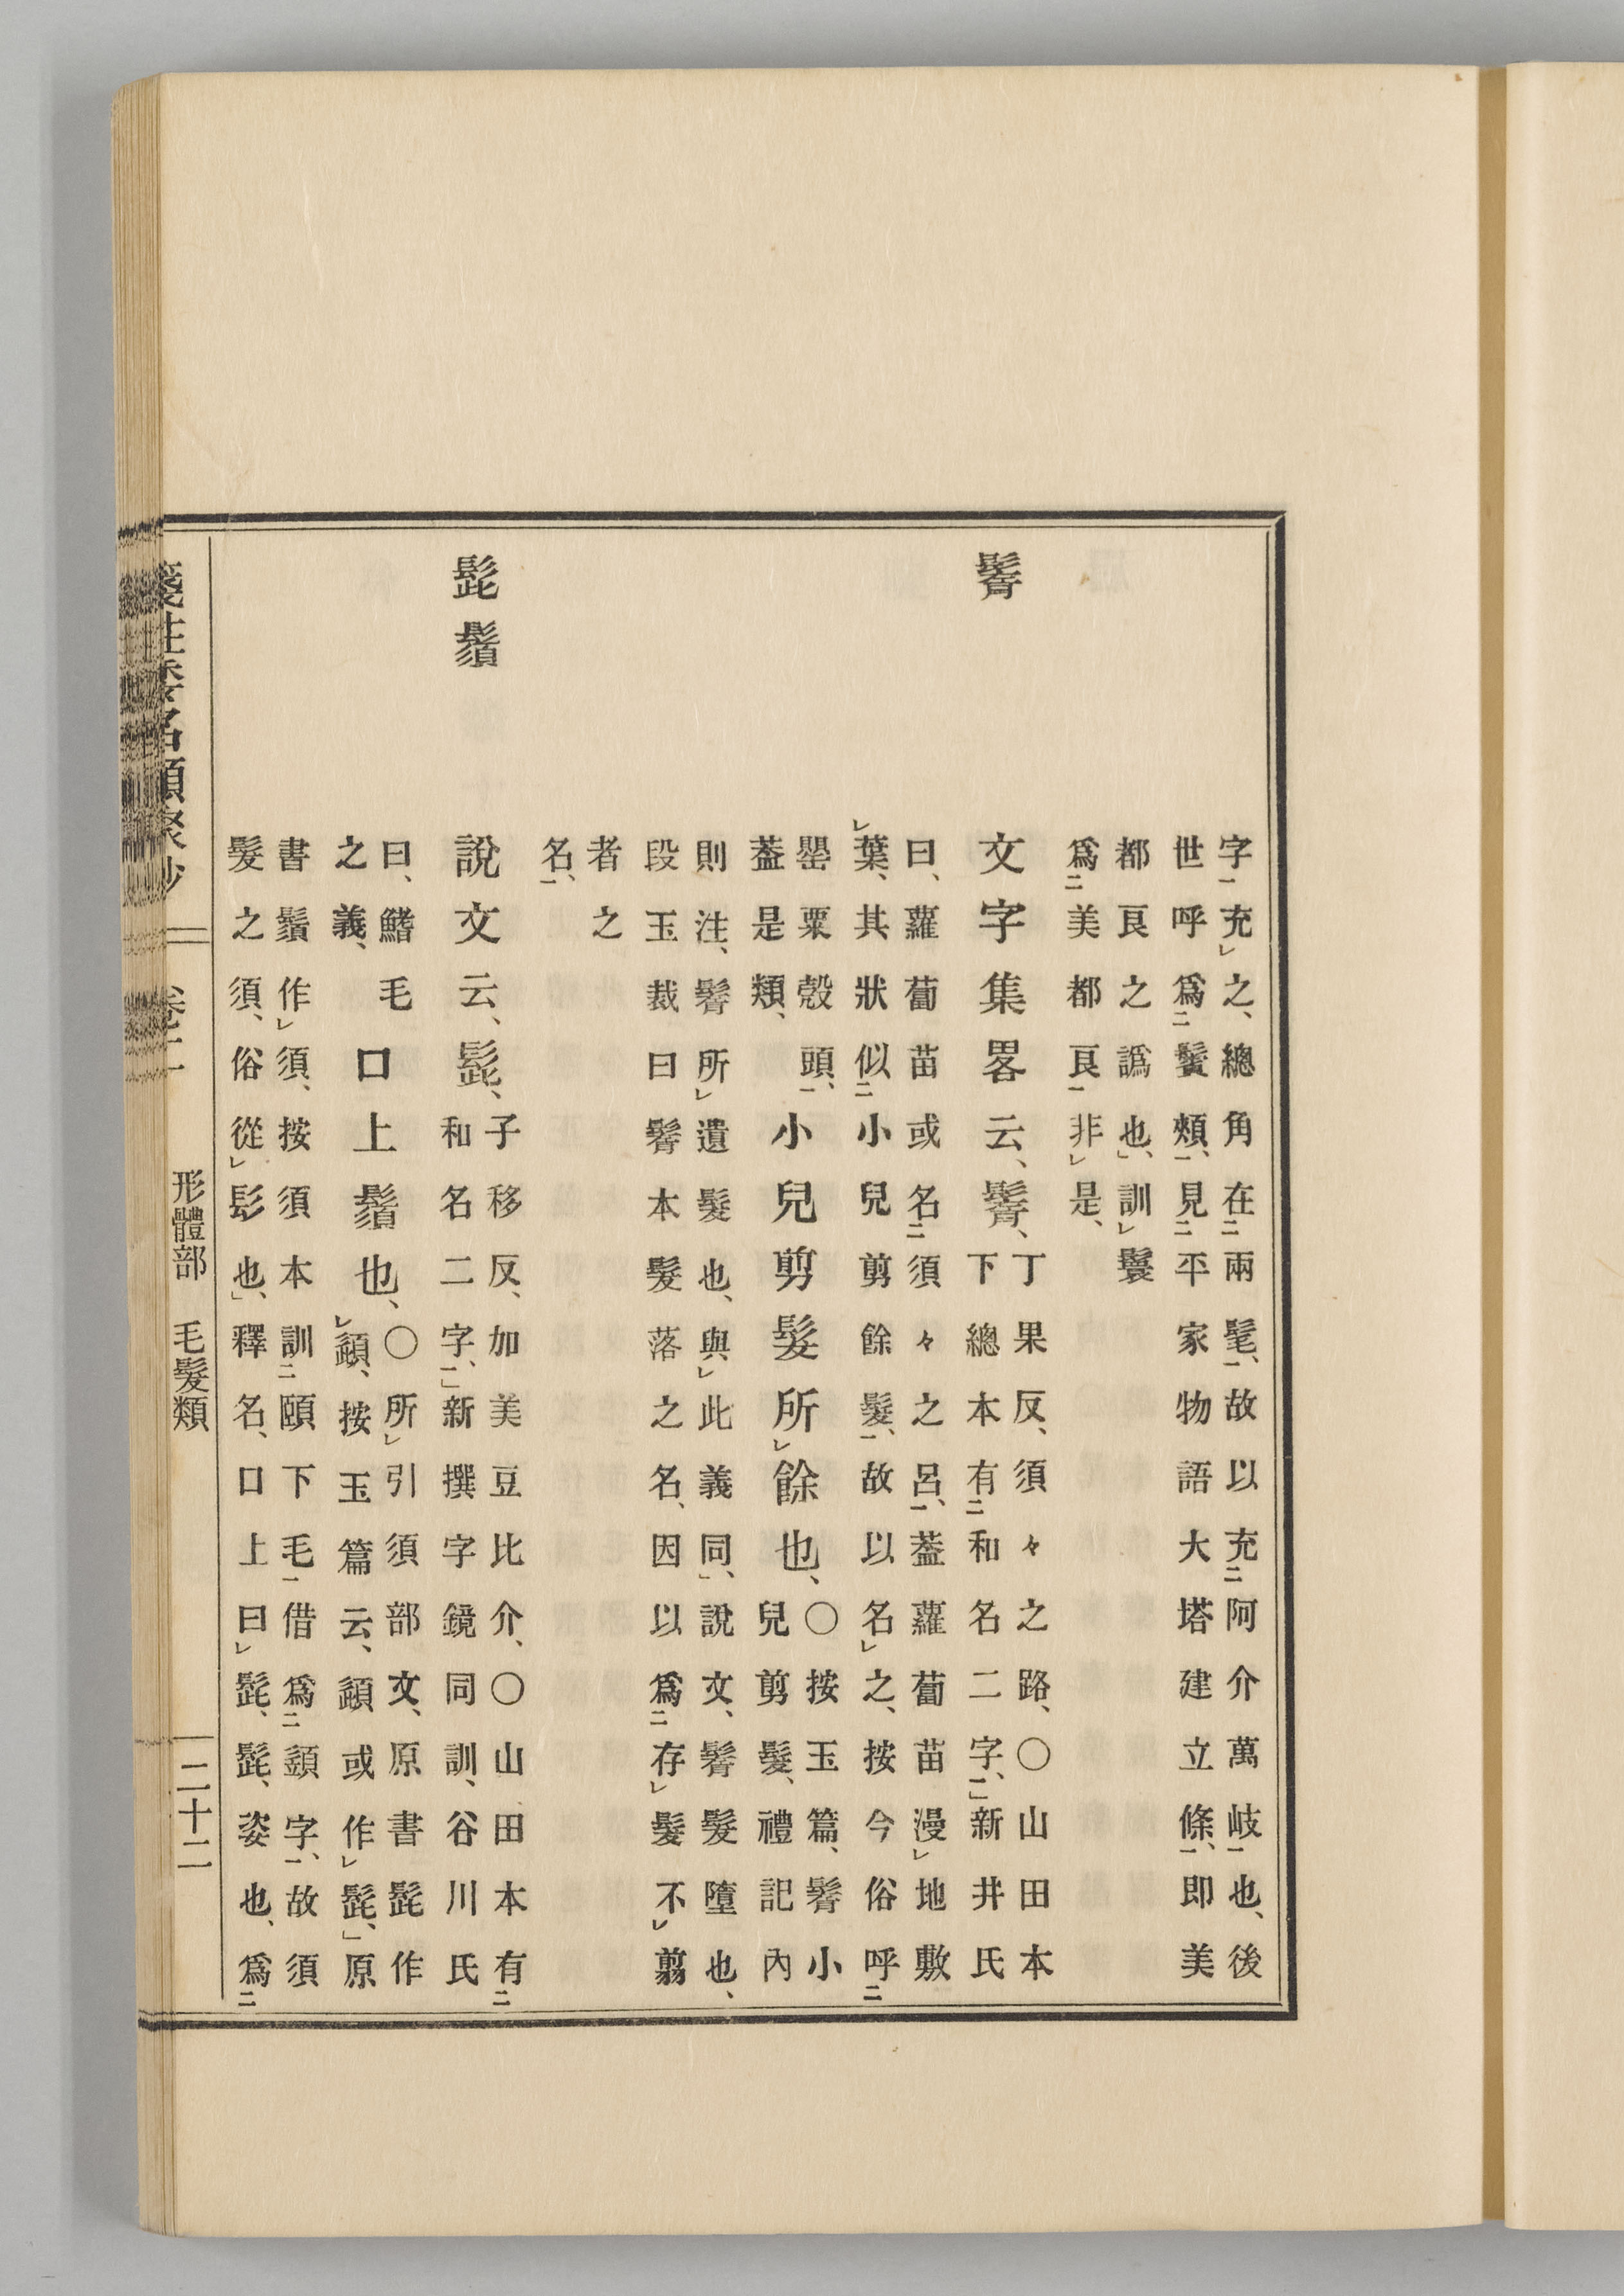 字一充レ之、總角在二兩髦一、故以充二阿介萬岐一也、後
世呼爲二鬢頰一、見二平家物語大塔建立條一、即美
都良之譌也、」訓レ鬟
爲二美都良一非レ是、
鬌
文字集畧云、鬌、
丁果反、須々之路、〇山田本
下總本有二和名二字一、」新井氏
曰、蘿蔔苗或名二須々之呂一、葢蘿蔔苗漫レ地敷
レ葉、其狀似二小兒剪餘髮一、故以名レ之、按今俗呼二
罌粟殼頭一、
葢是類、
小兒剪髮所レ餘也、
〇按玉篇、鬌小
兒剪髮、禮記內
則注、鬌所レ遺髮也、與レ此義同、」說文、鬌髮墮也、
段玉裁曰鬌本髮落之名、因以爲二存レ髮不レ翦
者之
名一、
髭鬚
說文云、髭、
子移反、加美豆比介、〇山田本有二
和名二字一、」新撰字鏡同訓、谷川氏
曰、鰭毛
之義、
口上鬚也、
〇所レ引須部文、原書髭作
レ頿、按玉篇云、頿或作レ髭、」原
書鬚作レ須、按須本訓二頤下毛一借爲二䇓字一、故須
髮之須、俗從レ髟也、」釋名、口上曰レ髭、髭、姿也、爲二
箋注倭名類聚抄 卷二 形體部 毛髮類 二十二